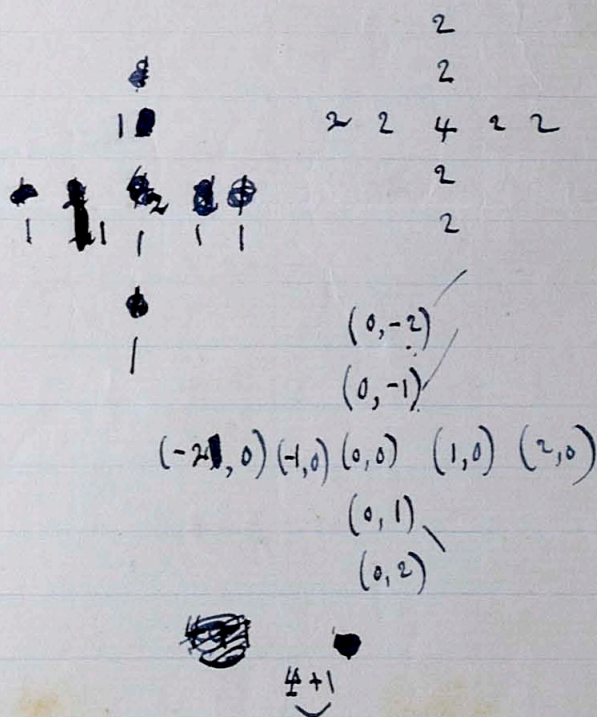 2
2
1
2 2 4 2 2
2
2
2
1 1 1 1 1
1
(0,-2)
(0,-1)
(-2,0) (-1,0) (0,0) (1,0) (2,0)
(0,1)
(0,2)
4+1